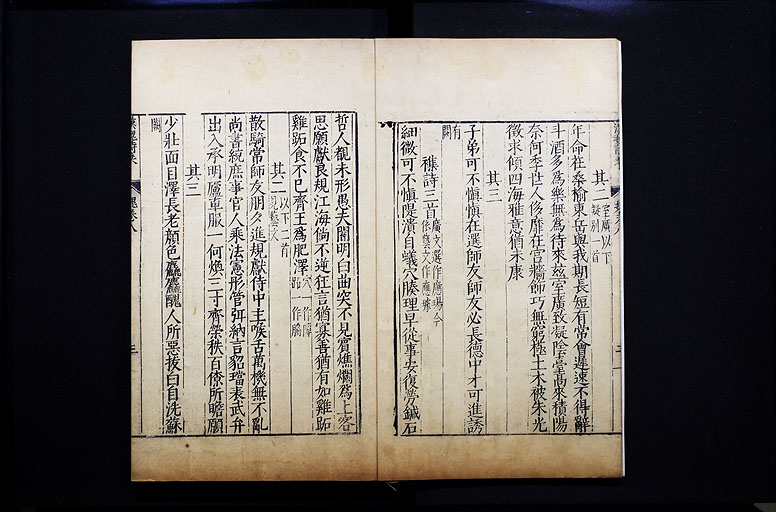 其二 室廣以下疑別一首
年命在桑榆東岳與我期長短有常會遲速不得辭
斗酒多為樂無為待來茲室廣致凝陰臺高來積陽
奈何季世人侈靡在宮牆飾巧無窮極土木被朱光
徵求傾四海雅意猶未康
其三
子弟可不慎慎在選師友師友必長德中才可進誘
有闕
雜詩三首 廣文選作應瑒今依藝文作應璩
細微可不慎隄潰自蟻穴腠理早從事安復勞鍼石
哲人覩未形愚夫闇明白曲突不見賓燋爛為上客
思願獻良規江海倘不逆狂言雖寡善猶有如雞跖
雞跖食不已齊王為肥澤
其二 以下二首見藝文
散騎常師友朋夕進規獻侍中主喉舌萬機無不亂
尚書統庶事官人乘法憲彤管弭納言貂璫表武弁
出入承明廬車服一何煥三寸齊榮秩百僚所瞻願
其三
少壯面目澤長老顏色麤麤醜人所惡拔白自洗蘇
闕